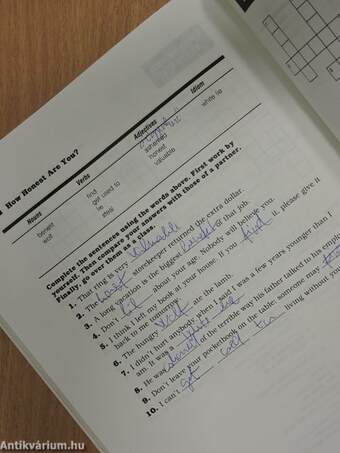 How Honest Are You?
Nouns Verbs Adjectives Idiom
benefit find ashamed white lie
wolf get used to honest
lie valuable
steal
Complete the sentences using the words above. First work by
yourself. Then compare your answers with those of a partner.
Finally, go over them as a class.
1. That ring is very valuable
2. The honest storekeeper returned the extra dollar.
3. A long vacation is the biggest benefit of that job.
4. Don't lie about your age. Nobody will believe you.
5. I think I left my book at your house. If you find it, please give it
back to me sometime.
6. The hungry wolf ate the lamb.
7. I didn't hurt anybody when I said I was a few years younger than I
am. It was a white lie
8. He was of the terrible way his father talked to his
9. Don't leave your pocketbook on the table: someone may
10. I can't get used to living without you
Antikvárium.hu